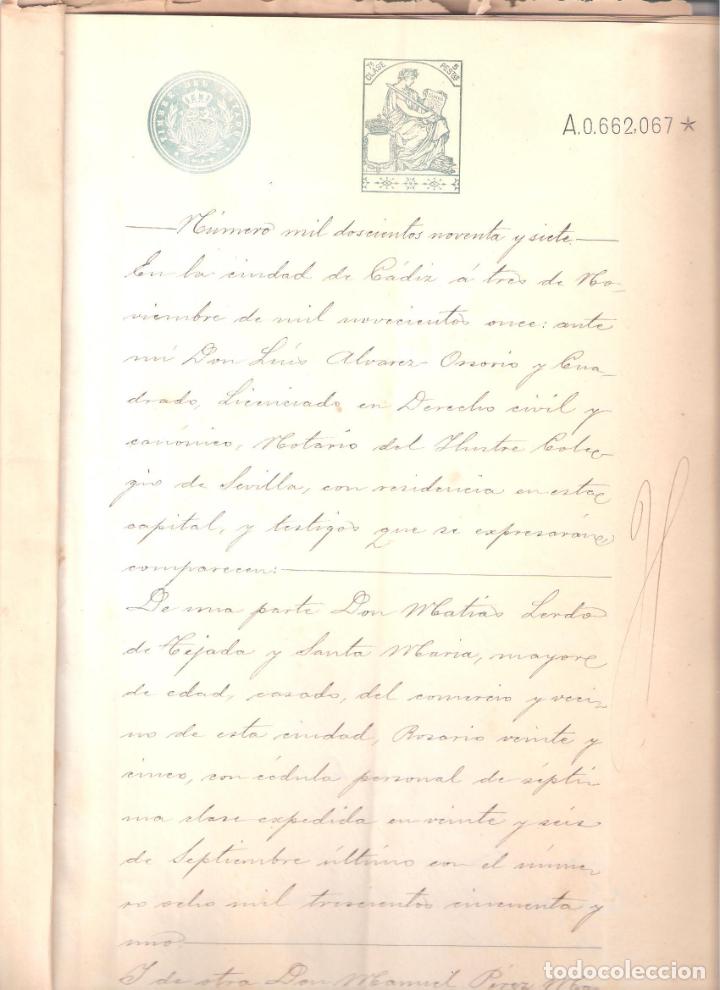 TIMBRE DEL ESTADO
7ª CLASE
5 PESTAS
A.0.662,067 *
Número mil doscientos noventa y siete.
En la ciudad de Cádiz á tres de No-
viembre de mil novecientos once: ante
mí Don Luís Alvarez Ossorio y Cua-
drado, Licenciado en Derecho civil y
canónico, Notario del Ilustre Cole-
gio de Sevilla, con residencia en esta
capital, y testigos que se expresarán
comparecen:
De una parte Don Matías Lerdo
de Tejada y Santa Maria, mayor
de edad, casado, del comercio y veci-
no de esta ciudad, Rosario veinte y
cinco, con cédula personal de sépti-
ma clase expedida en veinte y seis
de Septiembre último con el núme-
ro ocho mil trescientos cincuenta y
uno.
Y de otra Don Manuel Pérez
todocoleccion